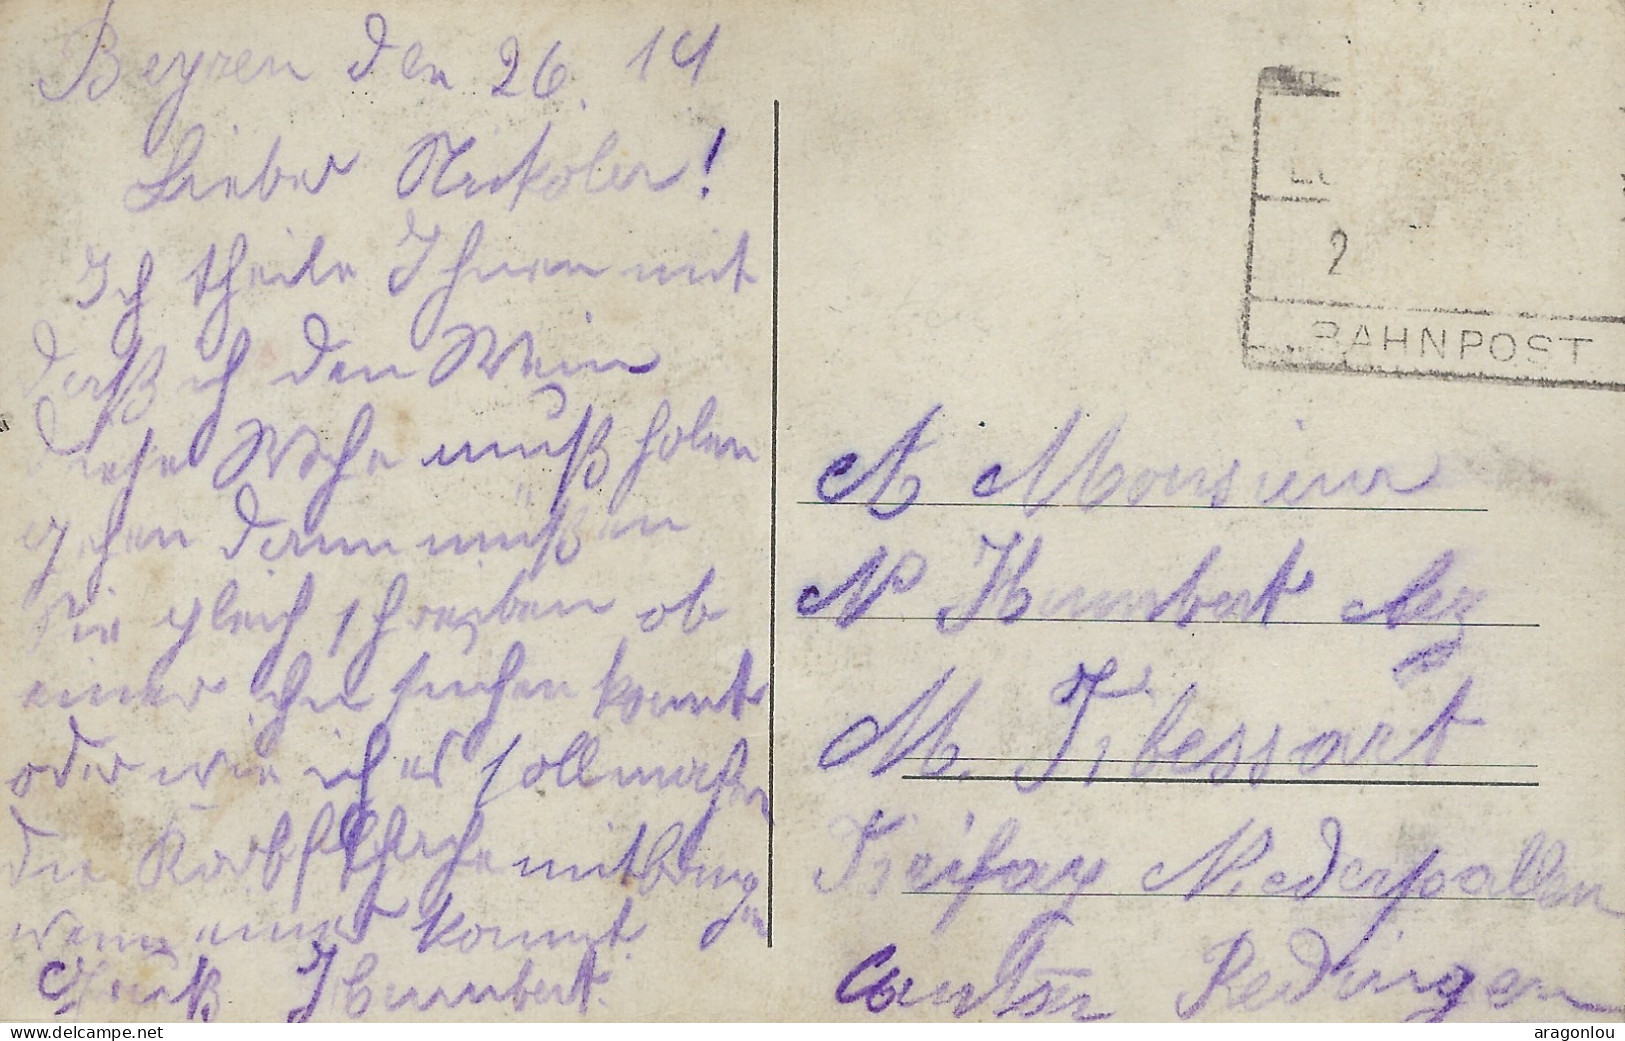 Beyren den 26. 14
Lieber Nikolas!
Ich theile Ihnen mit
daß ich den Wein
diese Woche muß holen
gehen dann müßen
Sie gleich schreiben ob
einer ihn suchen kommt
oder wie ich es soll machen
die Korbflasche mitbringen
wenn einer kommt.
Gruß J Humbert.
BAHNPOST
2
A Monsieur
N Humbert bez
M. Tibessart
Niederpallen
Canton Redingen
aragonlou